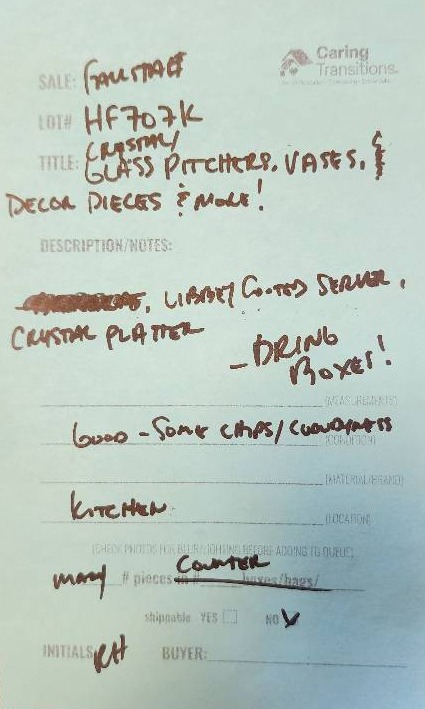 Caring
Transitions
SALE:
LOT# HF707K
TITLE: CRYSTAL/
GLASS PITCHERS, VASES, &
DECOR PIECES & MORE!
DESCRIPTION/NOTES:
LIBBEY FOOTED SERVER,
CRYSTAL PLATTER
- BRING
BOXES!
(MEASUREMENTS)
GOOD - SOME CHIPS/CLOUDINESS
(CONDITION)
(MATERIAL/BRAND)
KITCHEN
(LOCATION)
(CHECK PHOTOS FOR BLUR/LIGHTING BEFORE ADDING TO QUEUE)
COUNTER
MANY # pieces in # boxes/bags/
shippable YES NO
INITIALS RH BUYER: